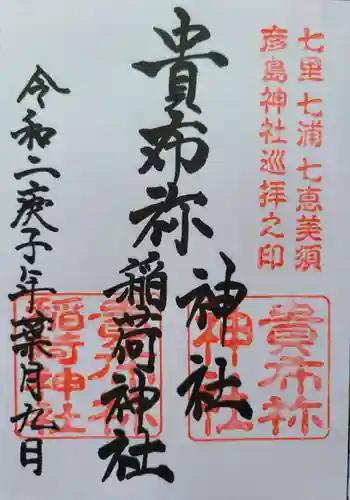 七里七浦七恵美須
彦島神社巡拝之印
貴布祢神社
稲荷神社
令和二庚子年葉月九日
貴布祢
神社
貴布祢
稲荷神社